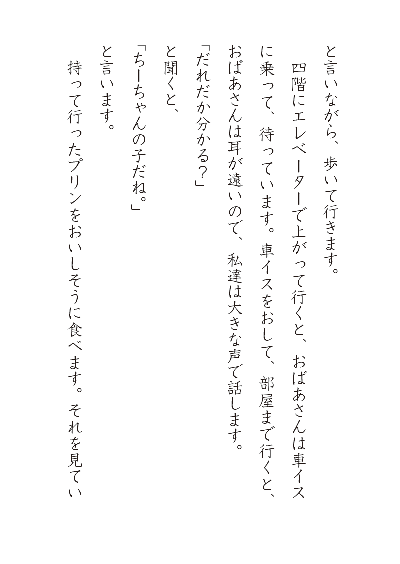 と言いながら、歩いて行きます。
四階にエレベーターで上がって行くと、おばあさんは車イス
に乗って、待っています。車イスをおして、部屋まで行くと、
おばあさんは耳が遠いので、私達は大きな声で話します。
「だれだか分かる？」
と聞くと、
「ちーちゃんの子だね。」
と言います。
持って行ったプリンをおいしそうに食べます。それを見てい